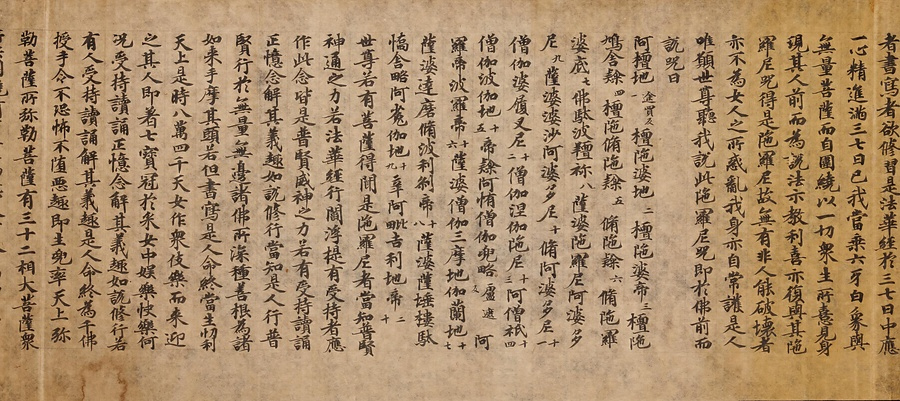 者書寫者欲修習是法華經於三七日中應
一心精進滿三七日已我當乘六牙白象與
無量菩薩而自圍繞以一切衆生所憙見身
現其人前而為說法示教利喜亦復與其陁
羅尼呪得是陁羅尼故無有非人能破壞者
亦不為女人之所惑亂我身亦自常護是人
唯願世尊聽我說此陁羅尼呪即於佛前而
說呪曰
阿檀地一 檀陁婆地二 檀陁婆帝三 檀陁
鳩舍隸四 檀陁脩陁隸五 脩陁隸六 脩陁羅
婆底七 佛䭾波羶祢八 薩婆陁羅尼阿婆多
尼九 薩婆婆沙阿婆多尼十 脩阿婆多尼十一
僧伽婆履叉尼十二 僧伽涅伽陁尼十三 阿僧祇十四
僧伽波伽地十五 帝隸阿惰僧伽兜略盧遮反 阿
羅帝波羅帝十六 薩婆僧伽三摩地伽蘭地十七
薩婆達磨脩波利剎帝十八 薩婆薩埵樓䭾
憍舍略阿㝹伽地十九 辛阿毗吉利地帝二十
世尊若有菩薩得聞是陁羅尼者當知普賢
神通之力若法華經行閻浮提有受持者應
作此念皆是普賢威神之力若有受持讀誦
正憶念解其義趣如說修行當知是人行普
賢行於無量無邊諸佛所深種善根為諸
如来手摩其頭若但書寫是人命終當生忉利
天上是時八萬四千天女作衆伎樂而来迎
之其人即著七寶冠於采女中娛樂快樂何
況受持讀誦正憶念解其義趣如說修行若
有人受持讀誦解其義趣是人命終為千佛
授手令不恐怖不隨惡趣即生兜率天上弥
勒菩薩所弥勒菩薩有三十二相大菩薩衆